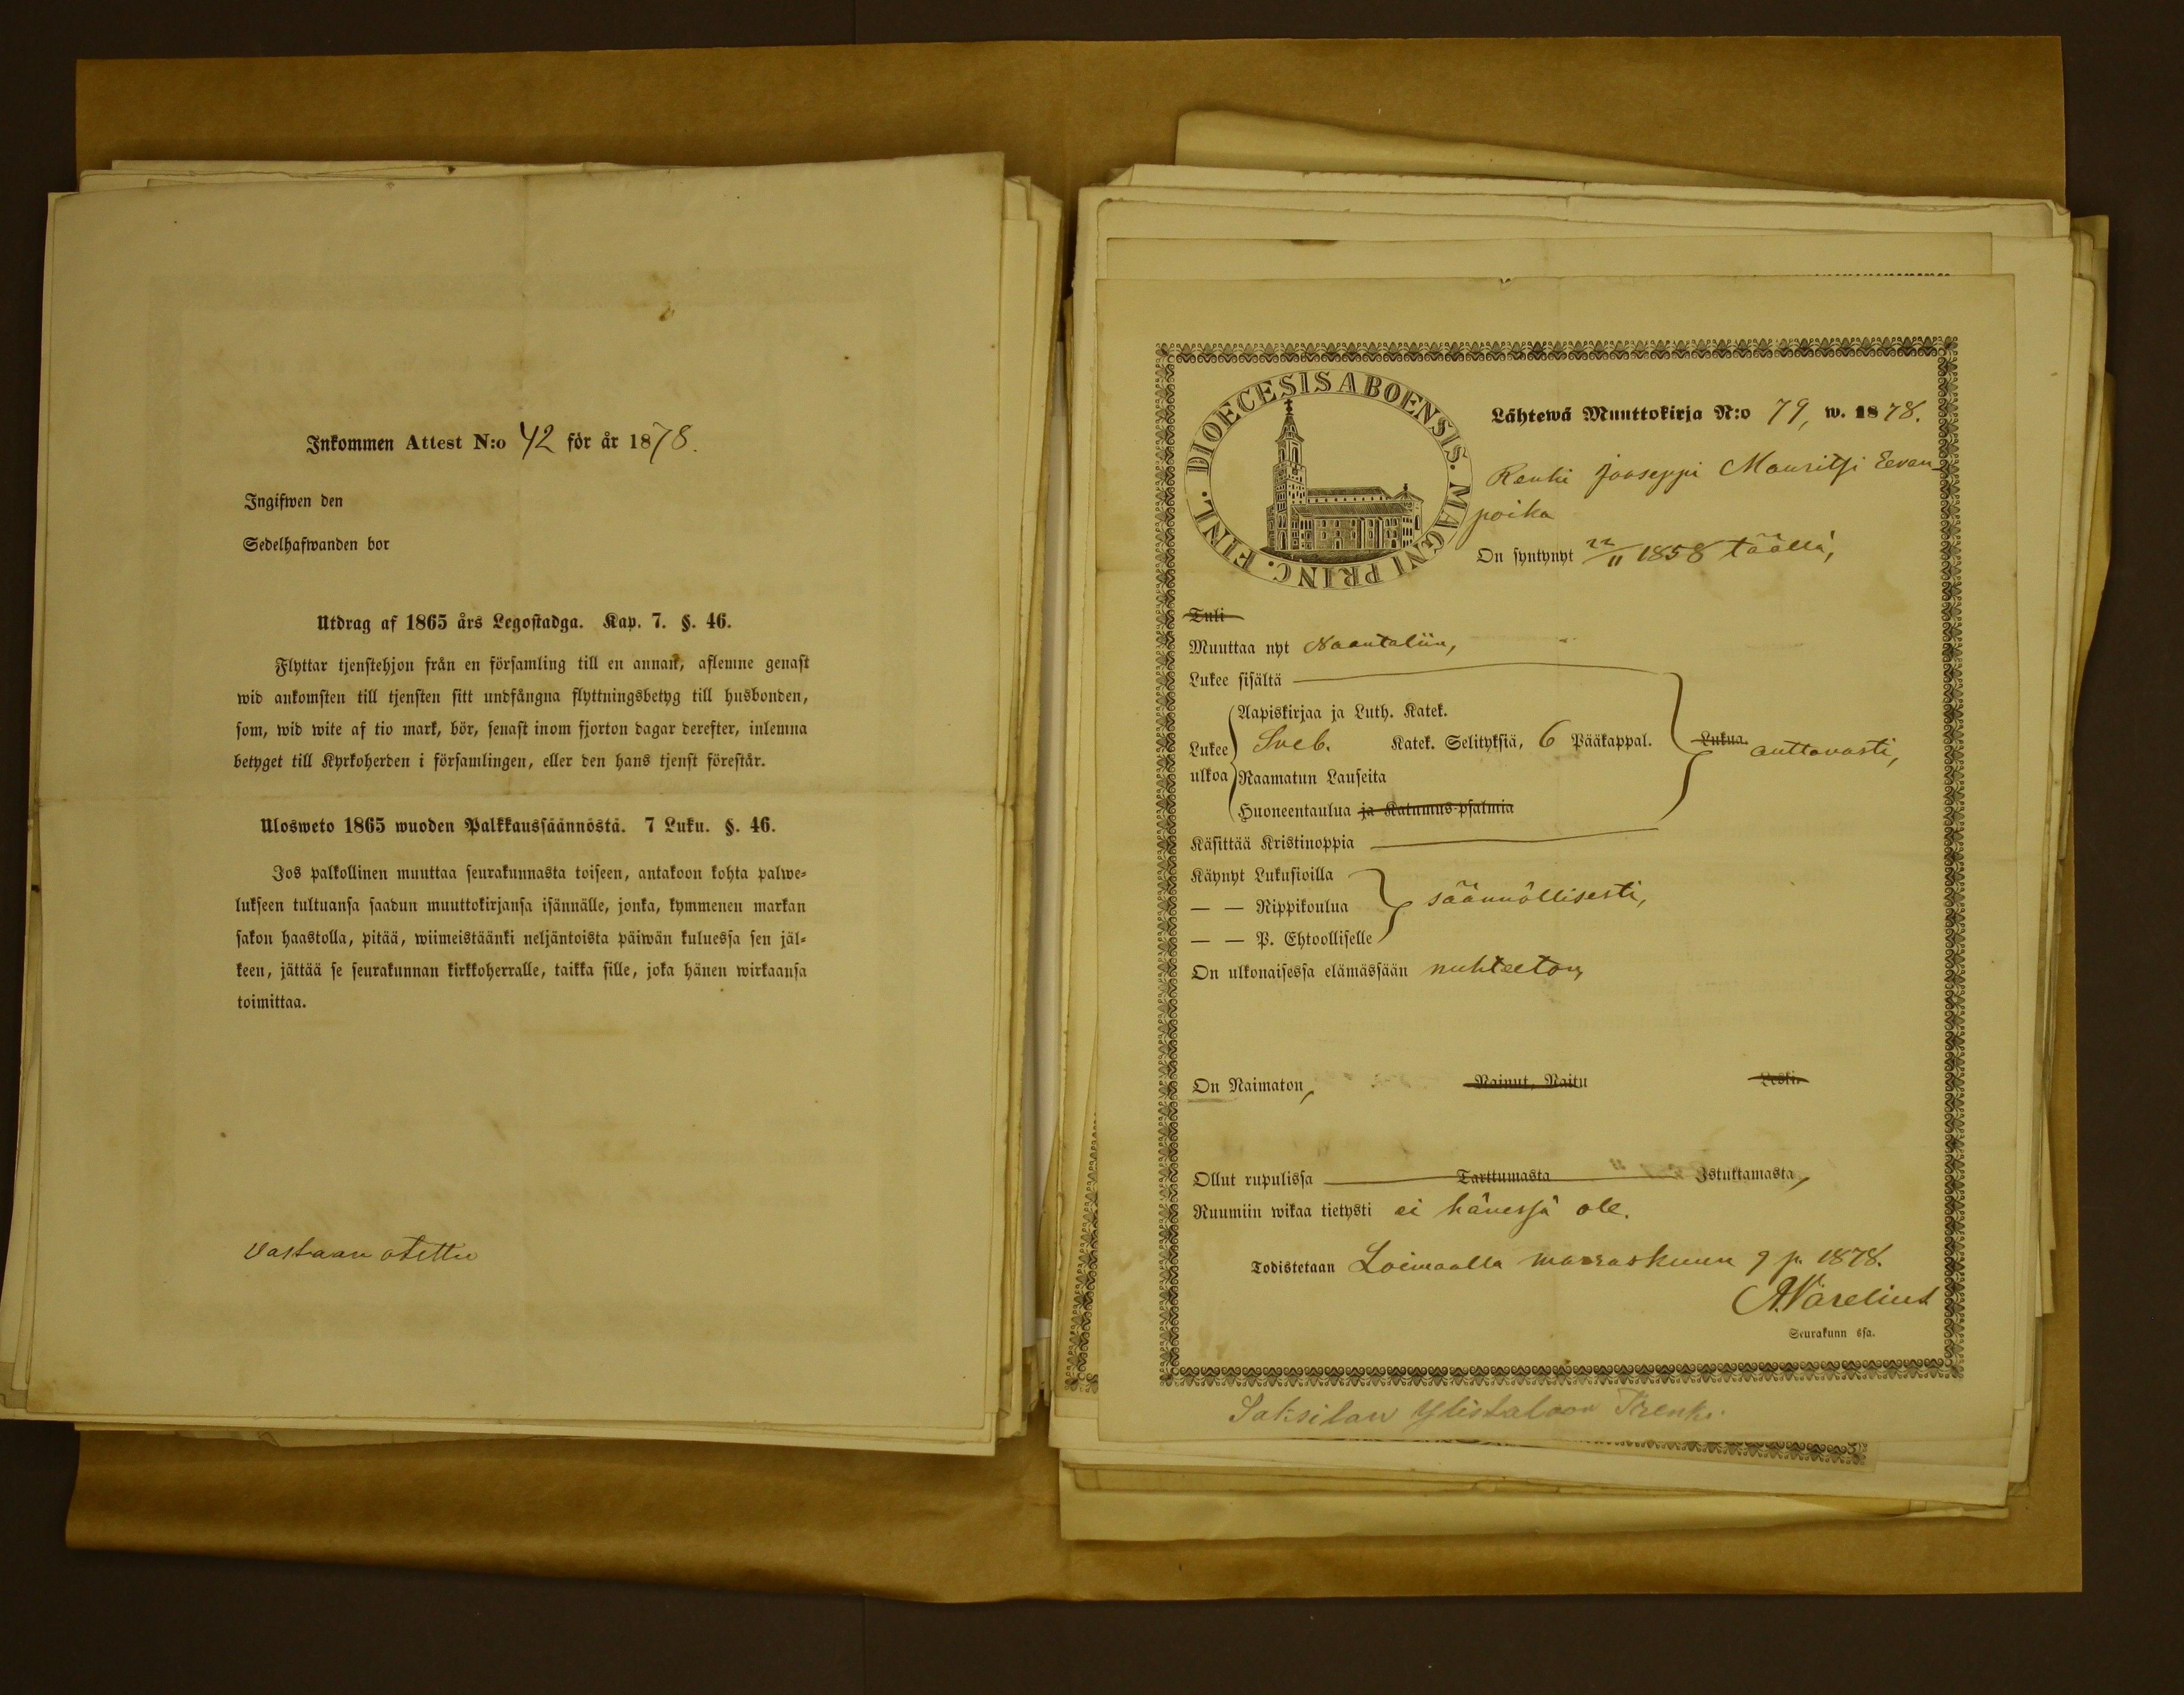 Inkommen Attest N:o 42 för år 1878.
Ingifwen den
Sedelhafwanden bor
Utdrag af 1865 års Legostadga. Kap. 7. §. 46.
Flyttar tjenstehjon från en församling till en annan, aflemne genast
wid ankomsten till tjensten sitt undfångna flyttningsbetyg till husbonden,
som, wid wite af tio mark, bör, senast inom fjorton dagar derefter, inlemna
betyget till Kyrkoherden i församlingen, eller den hans tjenst förestår.
Ulosweto 1865 wuoden Palkkaussäännöstä. 7 Luku. §. 46.
Jos palkollinen muuttaa seurakunnasta toiseen, antakoon kohta palwe=
lukseen tultuansa saadun muuttokirjansa isännälle, jonka, kymmenen markan
sakon haastolla, pitää, wiimeistäänki neljäntoista päiwän kuluessa sen jäl=
keen, jättää se seurakunnan kirkkoherralle, taikka sille, joka hänen wirkaansa
toimittaa.
Vastaan otettu
FINL. DIOECESIS ABOENSIS. MAGNI PRINC.
Lähtewä Muuttokirja N:o 79, w. 1878.
Renki Jooseppi Mauritsi Eevan-
poika
On syntynyt 22/11 1858 täällä,
Tuli
Muuttaa nyt Naantaliin,
Lukee sisältä
Aapiskirjaa ja Luth. Katek.
Lukee Sveb. Katek. Selityksiä, 6 Pääkappal. Lukua. auttavasti,
ulkoa Raamatun Lauseita
Huoneentaulua ja Katumus-psalmia
Käsittää Kristinoppia
Käynyt Lukusioilla
— — Rippikoulua säännöllisesti,
— — P. Ehtoolliselle
On ulkonaisessa elämässään nuhteeton,
On Naimaton, Nainut, Naitu Leski.
Ollut rupulissa Tarttumasta Istuttamasta,
Ruumiin wikaa tietysti ei hänessä ole.
Todistetaan Loimaalla marraskuun 9 p. 1878.
A. Varelius
Seurakunn ssa.
Saksilan Ylistaloon Trenki